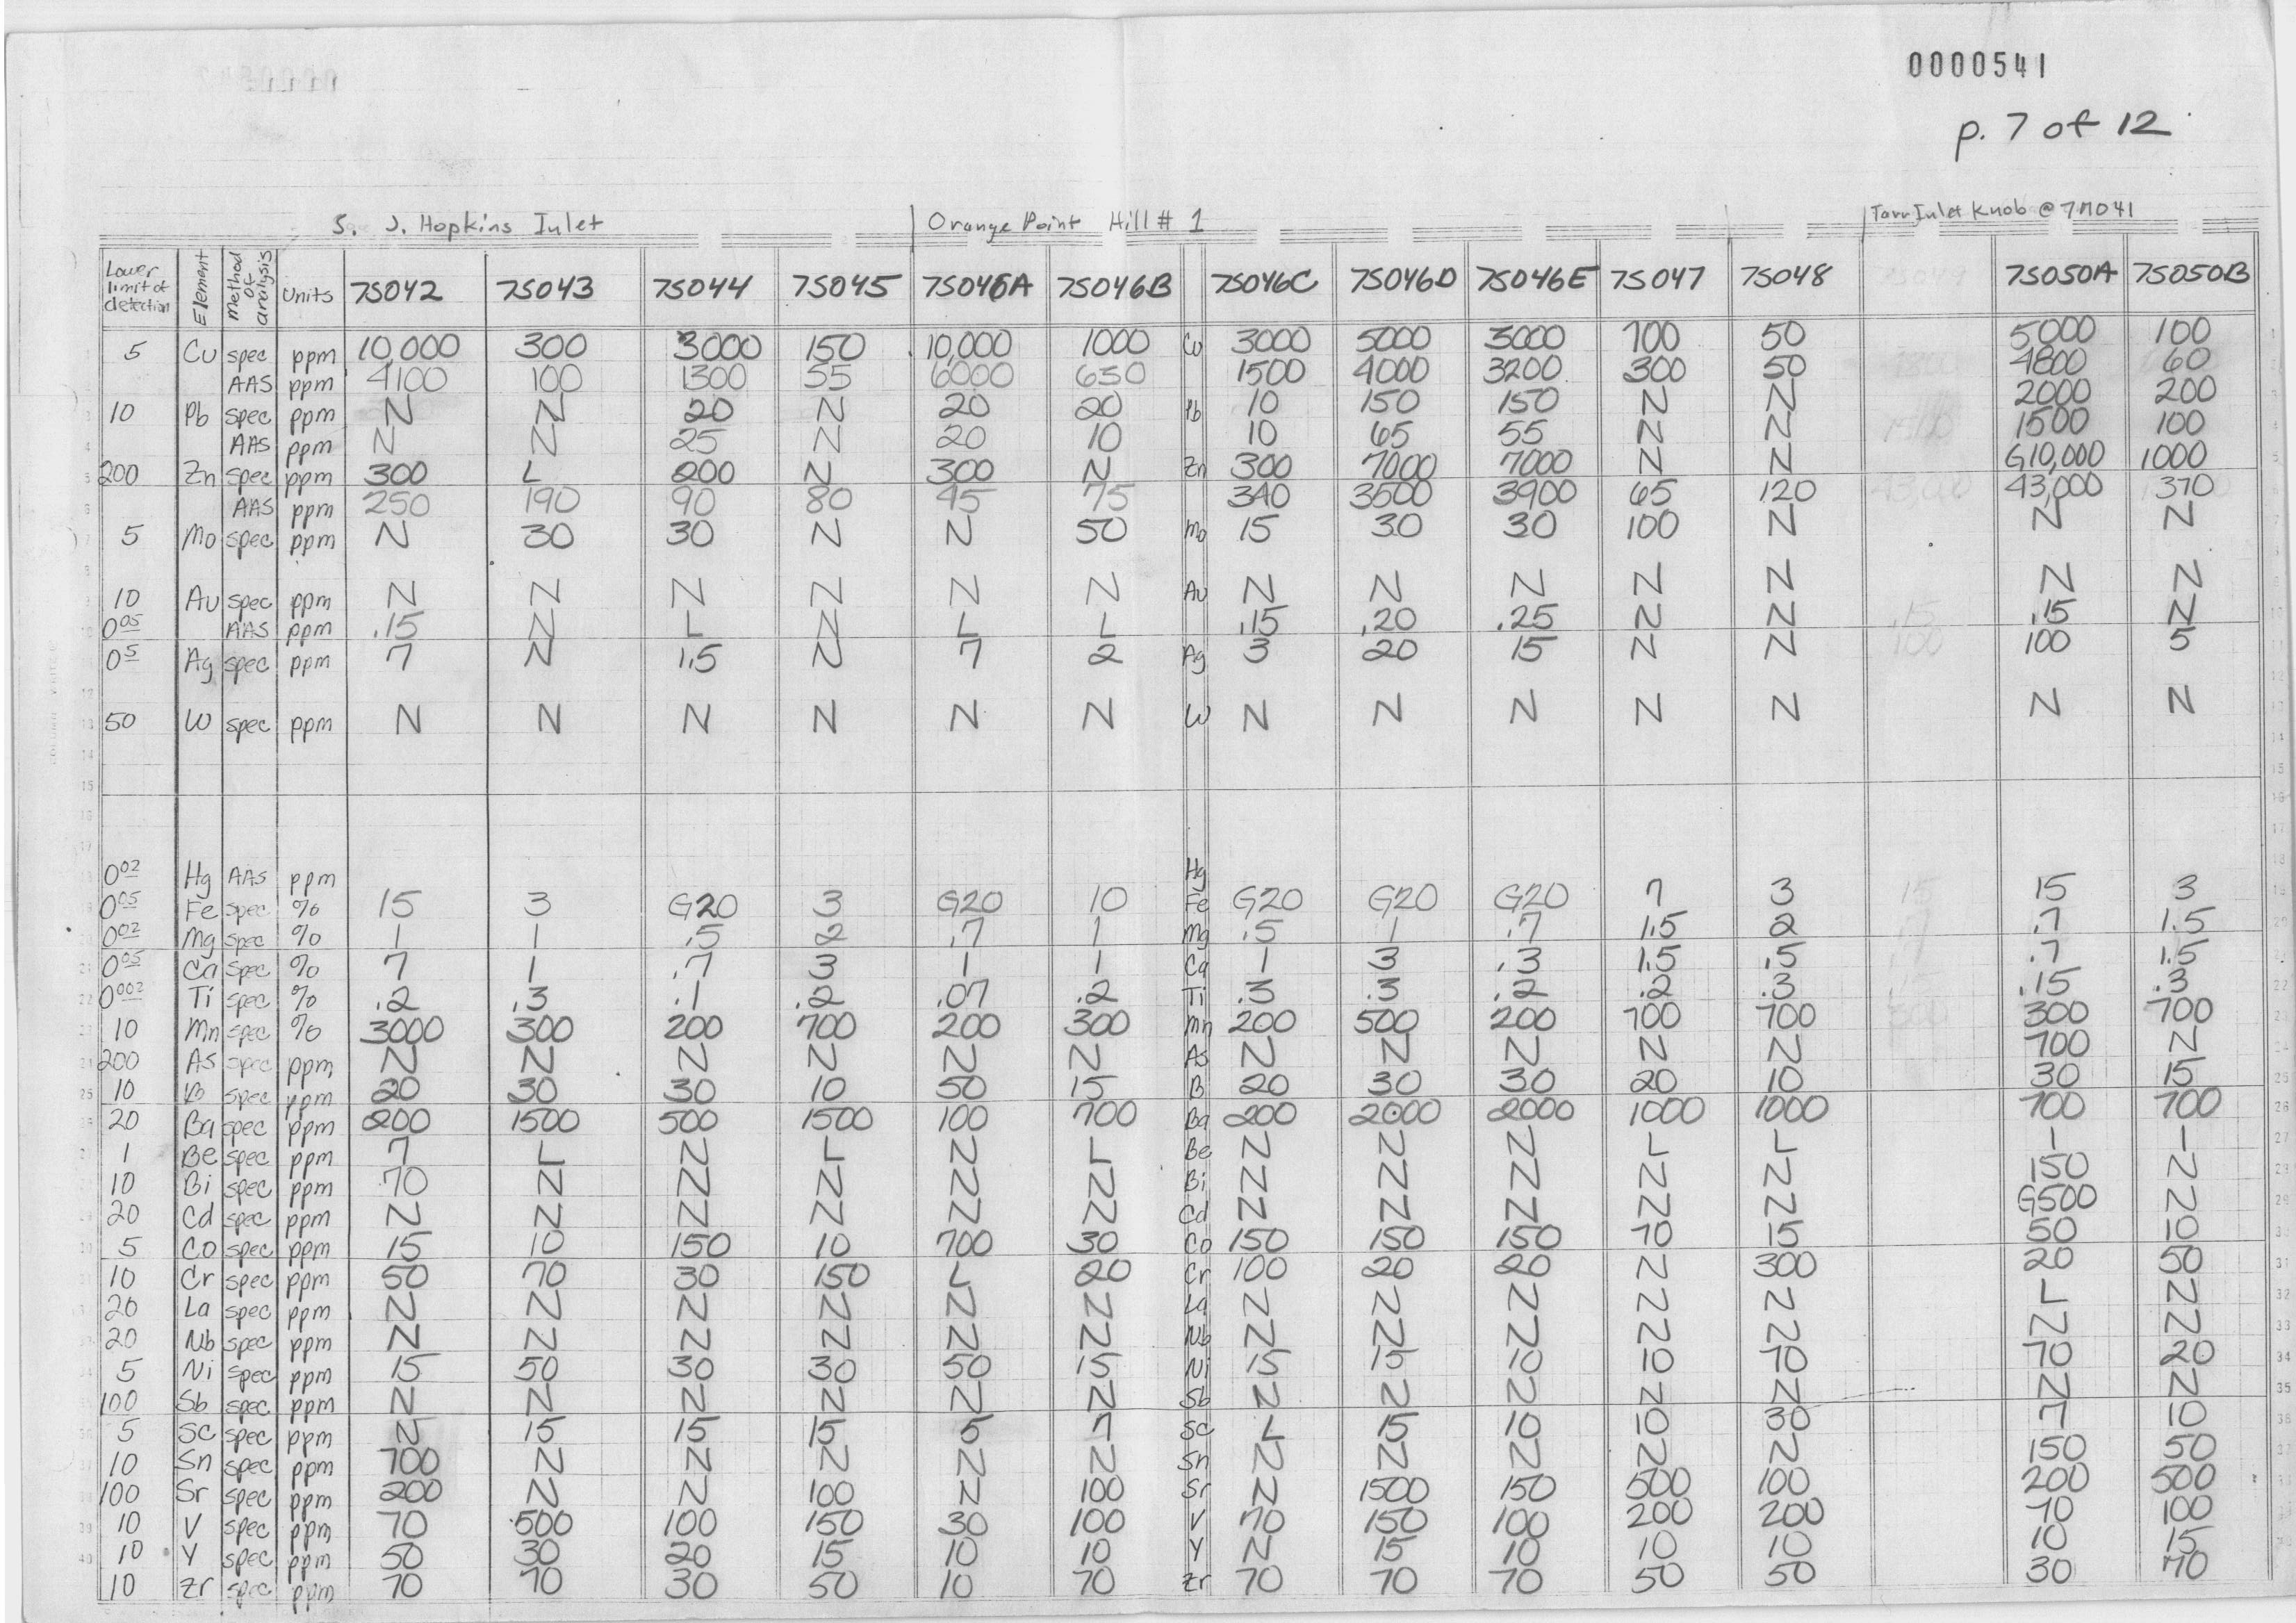 0000541
p. 7 of 12
S. J. Hopkins Inlet Orange Point Hill # 1 Tarr Inlet Knob @ 7M041
Lower limit of detection Element Method of analysis Units 7S042 7S043 7S044 7S045 7S046A 7S046B 7S046C 7S046D 7S046E 7S047 7S048 7S050A 7S050B
5 Cu spec ppm 10,000 300 3000 150 10,000 1000 Cu 3000 5000 3000 700 50 5000 100
AAS ppm 4100 100 1300 55 6000 650 1500 4000 3200 300 50 4800 60
10 Pb spec ppm N N 20 N 20 20 Pb 10 150 150 N N 2000 200
AAS ppm N N 25 N 20 10 10 65 55 N N 1500 100
200 Zn spec ppm 300 L 200 N 300 N Zn 300 7000 7000 N N G10,000 1000
AAS ppm 250 190 90 80 95 75 340 3500 3900 65 120 43,000 370
5 Mo spec ppm N 30 30 N N 50 Mo 15 30 30 100 N N N
10 Au spec ppm N N N N N N Au N N N N N N N
0.05 AAS ppm .15 N L N L L .15 .20 .25 N N .15 N
0.5 Ag spec ppm 7 N 1.5 N 7 2 Ag 3 20 15 N N 100 5
50 W spec ppm N N N N N N W N N N N N N N
0.02 Hg AAS ppm Hg
0.05 Fe spec % 15 3 G20 3 G20 10 Fe G20 G20 G20 7 3 15 3
0.02 Mg spec % 1 1 .5 2 .7 1 Mg .5 1 .7 1.5 2 .7 1.5
0.05 Ca spec % 7 1 .7 3 1 1 Ca 1 3 .3 1.5 .5 .7 1.5
0.002 Ti spec % .2 .3 .1 .2 .07 .2 Ti .3 .3 .2 .2 .3 .15 .3
10 Mn spec % 3000 300 200 700 200 300 Mn 200 500 200 700 700 300 700
200 As spec ppm N N N N N N As N N N N N 700 N
10 B spec ppm 20 30 30 10 50 15 B 20 30 30 20 10 30 15
20 Ba spec ppm 200 1500 500 1500 100 700 Ba 200 2000 2000 1000 1000 700 700
1 Be spec ppm 7 L N L N L Be N N N L L 1 1
10 Bi spec ppm 70 N N N N N Bi N N N N N 150 N
20 Cd spec ppm N N N N N N Cd N N N N N G500 N
5 Co spec ppm 15 10 150 10 700 30 Co 150 150 150 70 15 50 10
10 Cr spec ppm 50 70 30 150 L 20 Cr 100 20 20 N 300 20 50
20 La spec ppm N N N N N N La N N N N N L N
20 Nb spec ppm N N N N N N Nb N N N N N N N
5 Ni spec ppm 15 50 30 30 50 15 Ni 15 15 10 10 70 70 20
100 Sb spec ppm N N N N N N Sb N N N N N N N
5 Sc spec ppm N 15 15 15 5 7 Sc L 15 10 10 30 7 10
10 Sn spec ppm 700 N N N N N Sn N N N N N 150 50
100 Sr spec ppm 200 N N 100 N 100 Sr N 1500 150 500 100 200 500
10 V spec ppm 70 500 100 150 30 100 V 70 150 100 200 200 70 100
10 Y spec ppm 50 30 20 15 10 10 Y N 15 10 10 10 10 15
10 Zr spec ppm 70 70 30 50 10 70 Zr 70 70 70 50 50 30 70